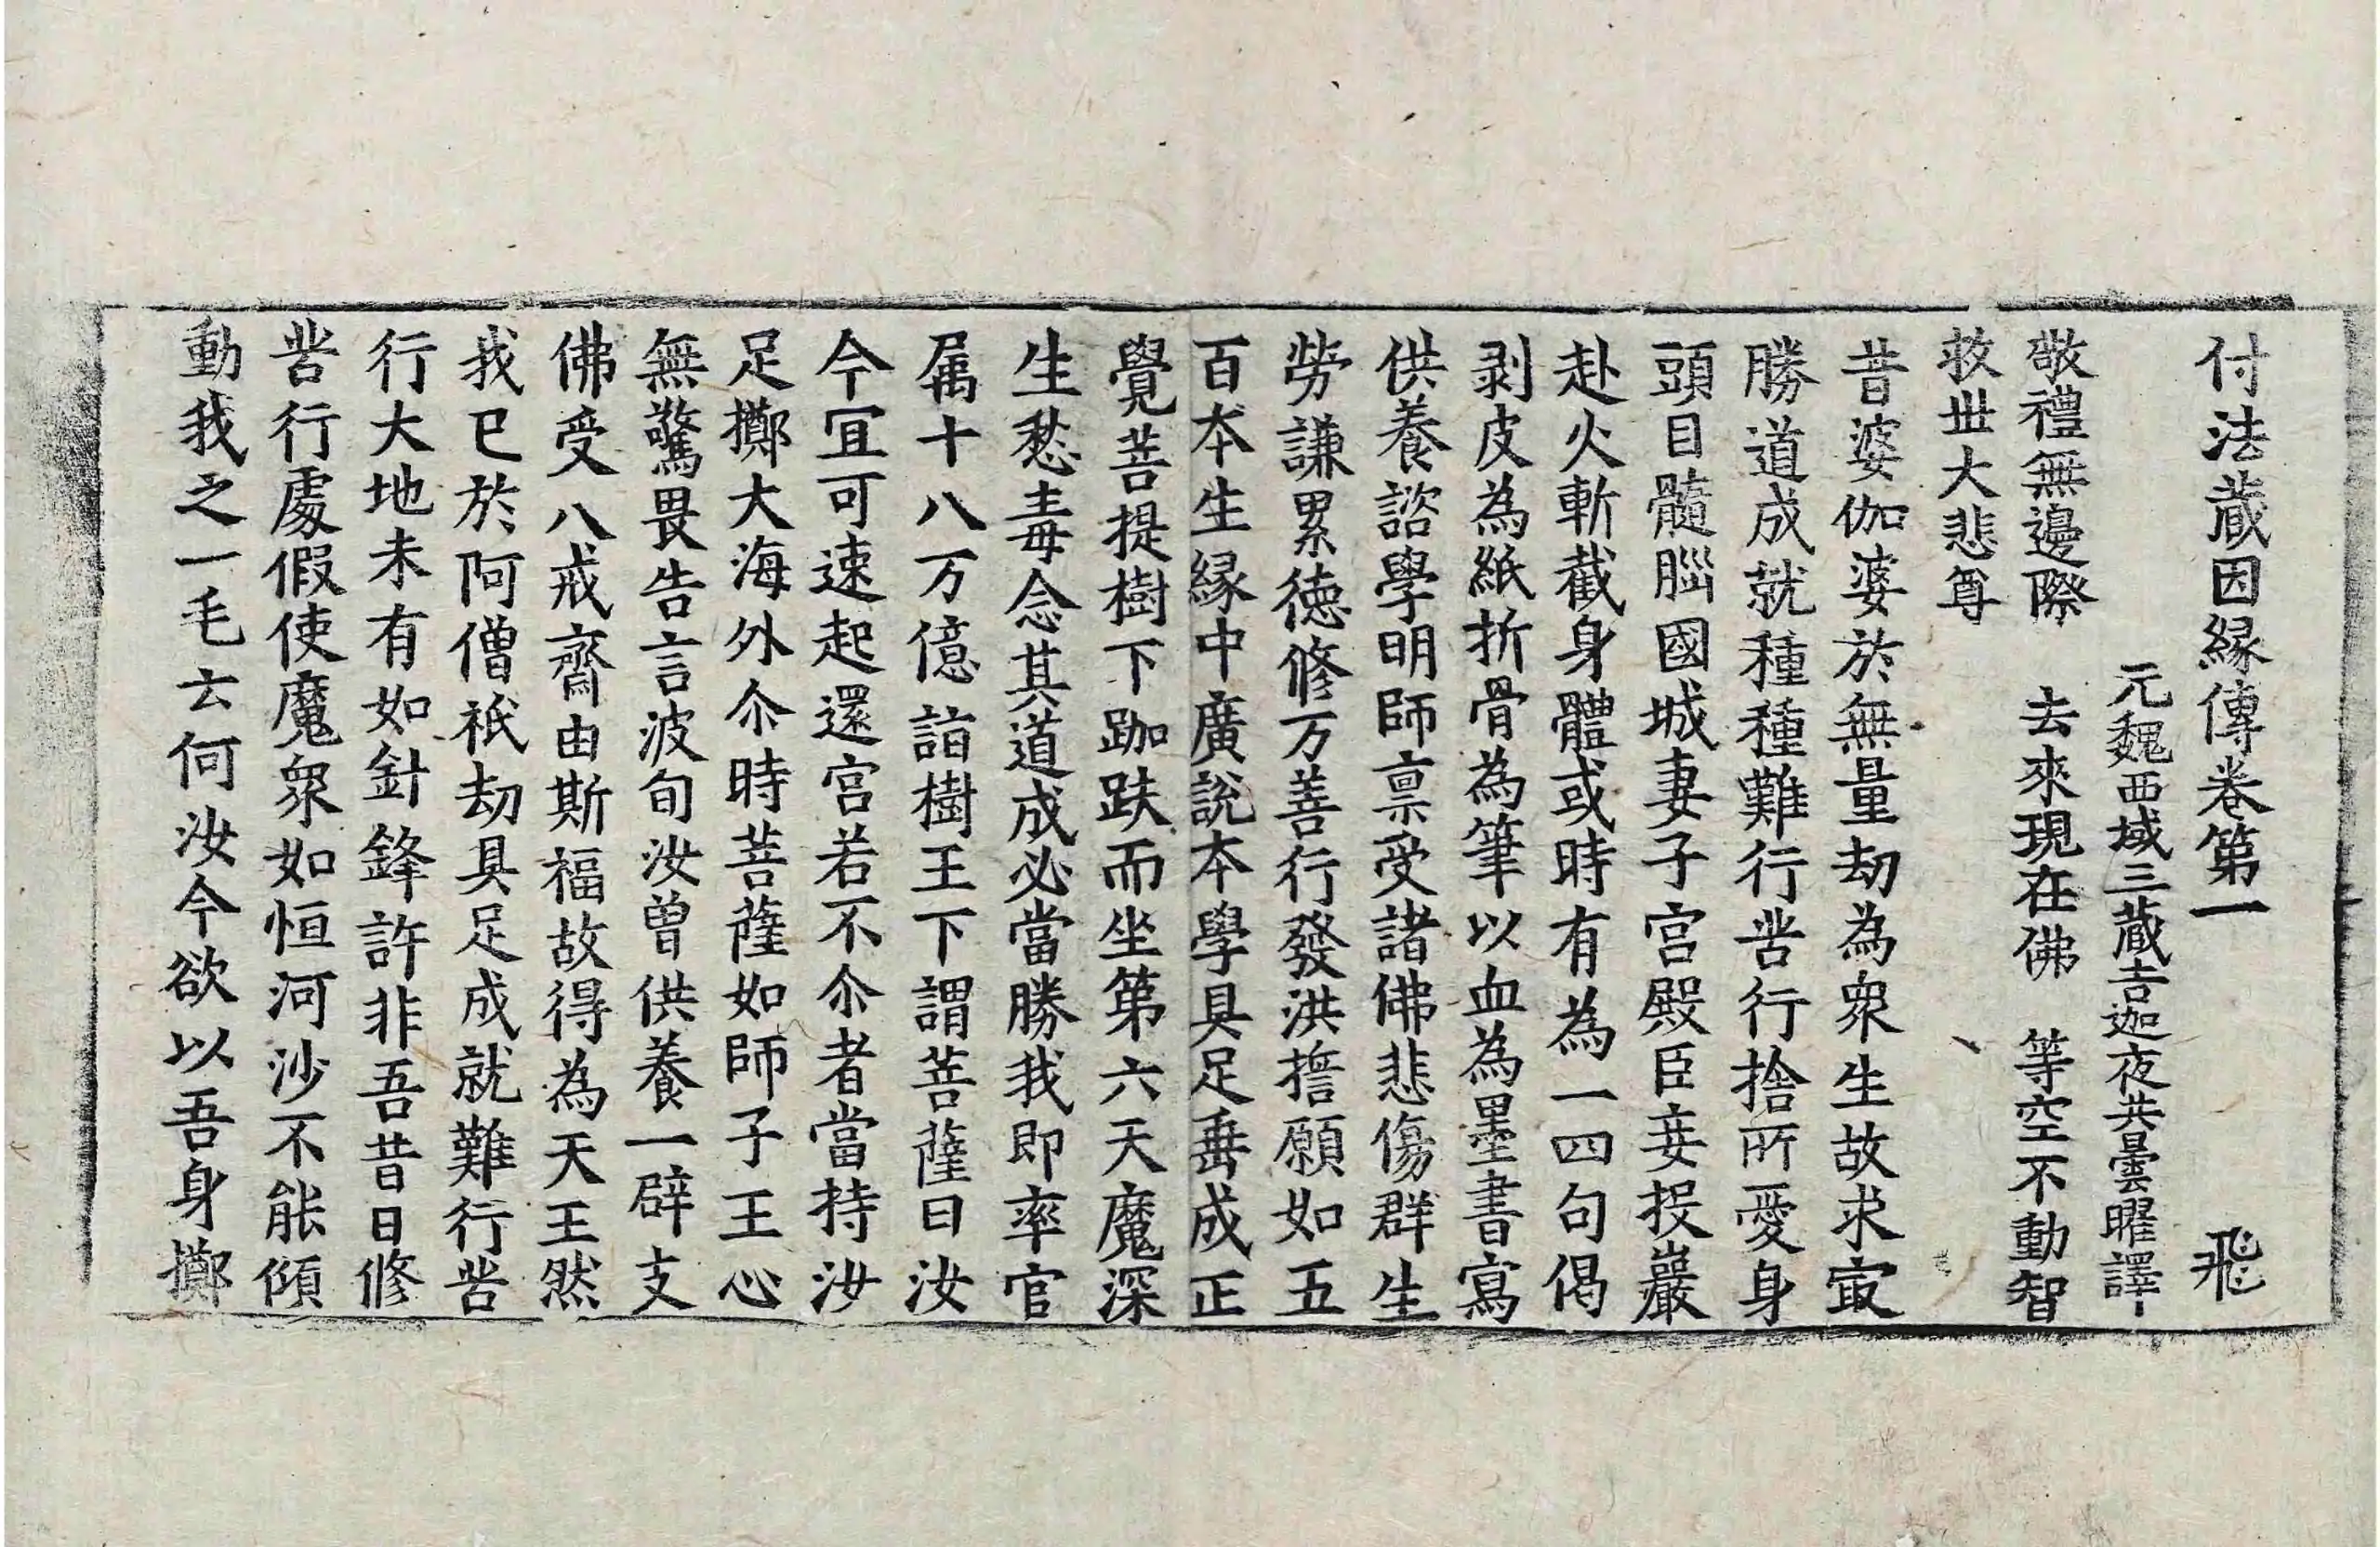 付法蔵因縁傳卷第一　飛
元魏西域三蔵吉迦夜共曇曜譯
敬禮無邊際　去來現在佛　等空不動智
救丗大悲尊
昔婆伽婆於無量劫為衆生故求㝡
勝道成就種種難行苦行捨所愛身
頭目髓𦛁國城妻子宫殿臣妾投巖
赴火斬截身體或時有為一四句偈
剥皮為紙折骨為筆以血為墨書寫
供養諮學明師禀受諸佛悲傷群生
勞謙累徳修万善行發洪擔願如五
百本生縁中廣說本學具足垂成正
覺菩提樹下跏趺而坐第六天魔深
生愁毒念其道成必當勝我即率官
属十八万億詣樹王下謂菩薩曰汝
今冝可速起還宫若不尒者當持汝
足擲大海外尒時菩薩如師子王心
無驚畏告言波旬汝曾供養一辟支
佛受八戒齋由斯福故得為天王然
我已於阿僧祇劫具足成就難行苦
行大地未有如針鋒許非吾昔日修
苦行處假使魔衆如恒河沙不能傾
動我之一毛云何汝今欲以吾身擲